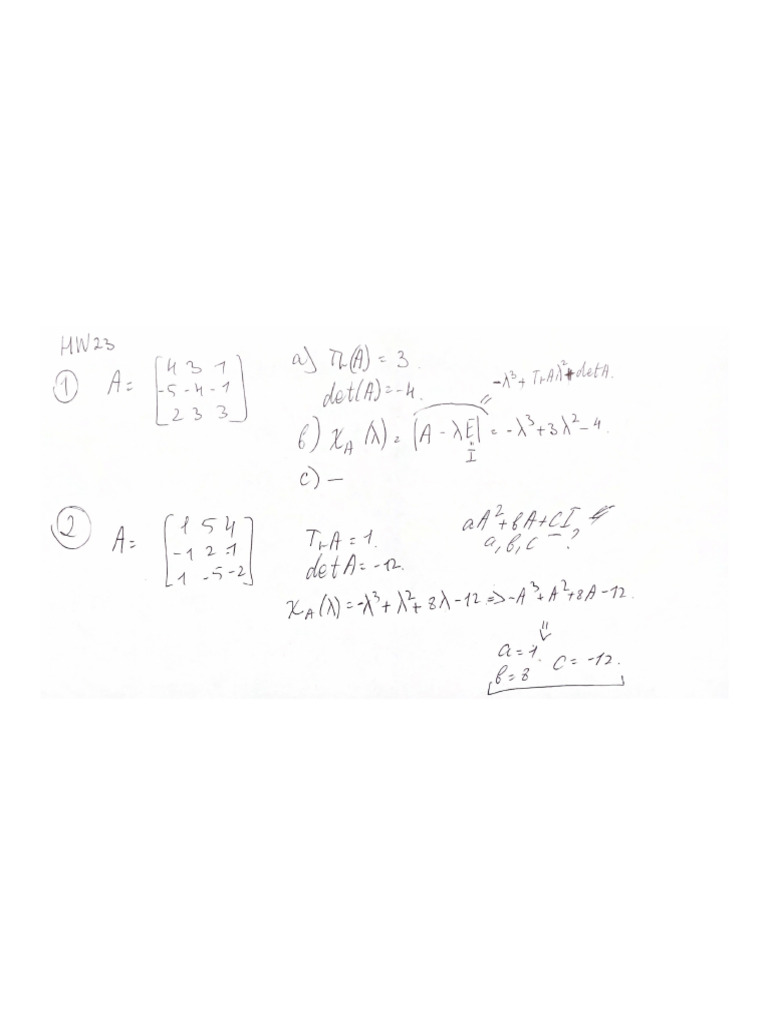 HW23
① A = [4 3 1
-5 -4 -1
2 3 3]
a) Tr(A) = 3.
det(A) = -4.
-λ³ + TrAλ² + detA.
b) χ_A(λ) = |A - λE| = -λ³ + 3λ² - 4.
=
I
c) —
② A = [1 5 4
-1 2 -1
1 -5 -2]
TrA = 1.
det A = -12.
aA² + bA + CI,
a, b, c - ?
χ_A(λ) = -λ³ + λ² + 8λ - 12 => -A³ + A² + 8A - 12.
a = 1.
b = 8
C = -12.